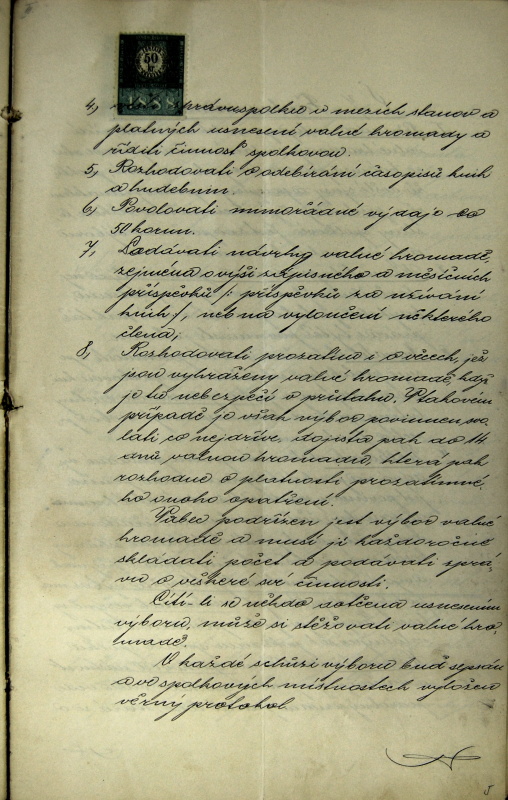 50
kr
1898
4, správu spolku v mezích stanov a
platných usnesení valné hromady a
říditi činnost spolkovou.
5, Rozhodovati o odebírání časopisů knih
a hudebnin.
6, Povolovati mimořádné výdaje do
50 korun.
7, Podávati návrhy valné hromadě,
zejména o výši zápisného a měsíčních
příspěvků /: příspěvků za užívání
knih :/, neb na vyloučení některého
člena;
8, Rozhodovati prozatímně i o věcech, jež
jsou vyhraženy valné hromadě, když
je tu nebezpečí v průtahu. V takovém
případě je však výbor povinnen svo-
lati co nejdříve, dojista pak do 14
dnů valnou hromadu, která pak
rozhodne o platnosti prozatímné-
ho onoho opatření.
Vůbec podřízen jest výbor valné
hromadě a musí jí každoročně
skládati počet a podávati zprá-
vu o veškeré své činnosti.
Cítí-li se někdo dotčena usnesením
výboru, může si stěžovati valné hro-
madě.
O každé schůzi výboru buď sepsán
a ve spolkových místnostech vyložen
věrný protokol.
5